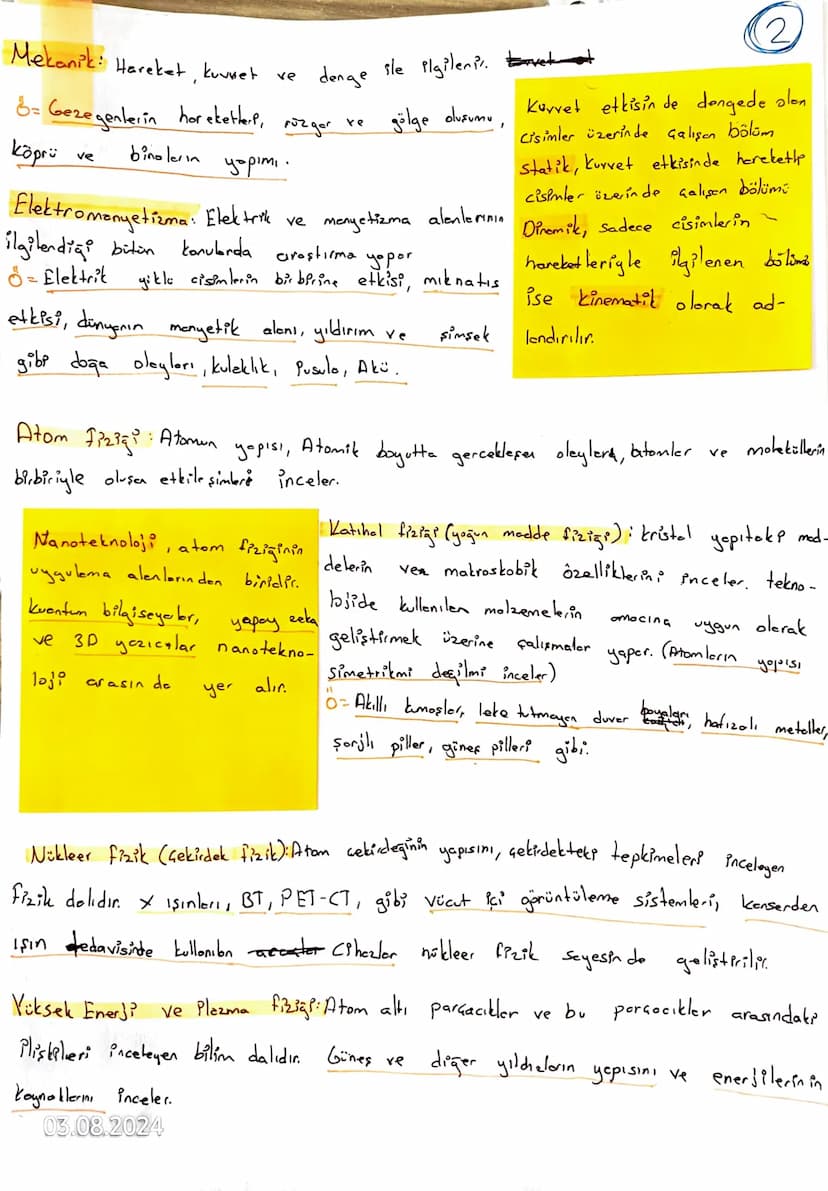 2
Mekanik: Hareket, kuvvet ve denge ile ilgilenir.
Ö= Gezegenlerin hareketleri, rüzgar ve gölge oluşumu,
köprü ve binaların yapımı.
Kuvvet etkisin de dengede olan
cisimler üzerinde çalışan bölüm
statik, kuvvet etkisinde hareketli
cisimler üzerinde çalışan bölümü
Dinamik, sadece cisimlerin
hareketleriyle ilgilenen bölümü
ise kinematik olarak ad-
landırılır.
Elektromanyetizma: Elektrik ve manyetizma alanlarının
ilgilendiği bütün konularda araştırma yapar
Ö= Elektrik yüklü cisimlerin birbirine etkisi, mıknatıs
etkisi, dünyanın manyetik alanı, yıldırım ve şimşek
gibi doğa olayları, kulaklık, Pusula, Akü.
Atom fiziği: Atomun yapısı, Atomik boyutta gerçekleşen olayları, atomlar ve moleküllerin
birbiriyle oluşan etkileşimleri inceler.
Nanoteknoloji, atom fiziğinin
uygulama alanlarından biridir.
Kuantum bilgisayarlar, yapay zeka
ve 3D yazıcılar nanotekno-
loji arasında yer alır.
Katıhal fiziği (yoğun madde fiziği): kristal yapıtaki mad-
delerin makroskobik özelliklerini inceler. tekno-
lojide kullanılan malzemelerin amacına uygun olarak
geliştirmek üzerine çalışmalar yapar. (Atomların yapısı
simetrikmi değilmi inceler)
Ö= Akıllı kumaşlar, leke tutmayan duvar boyaları, hafızalı metaller,
Şarjlı piller, güneş pilleri gibi.
Nükleer fizik (Çekirdek fizik): Atom çekirdeğinin yapısını, çekirdekteki tepkimeleri inceleyen
fizik dalıdır. X ışınları, BT, PET-CT, gibi vücut içi görüntüleme sistemleri, kanserden
ışın tedavisinde kullanılan cihazlar nükleer fizik sayesinde geliştirilir.
Yüksek Enerji ve Plazma fiziği: Atom altı parçacıklar ve bu parçacıklar arasındaki
ilişkileri inceleyen bilim dalıdır. Güneş ve diğer yıldızların yapısını ve enerjilerinin
kaynaklarını inceler.
03.08.2024